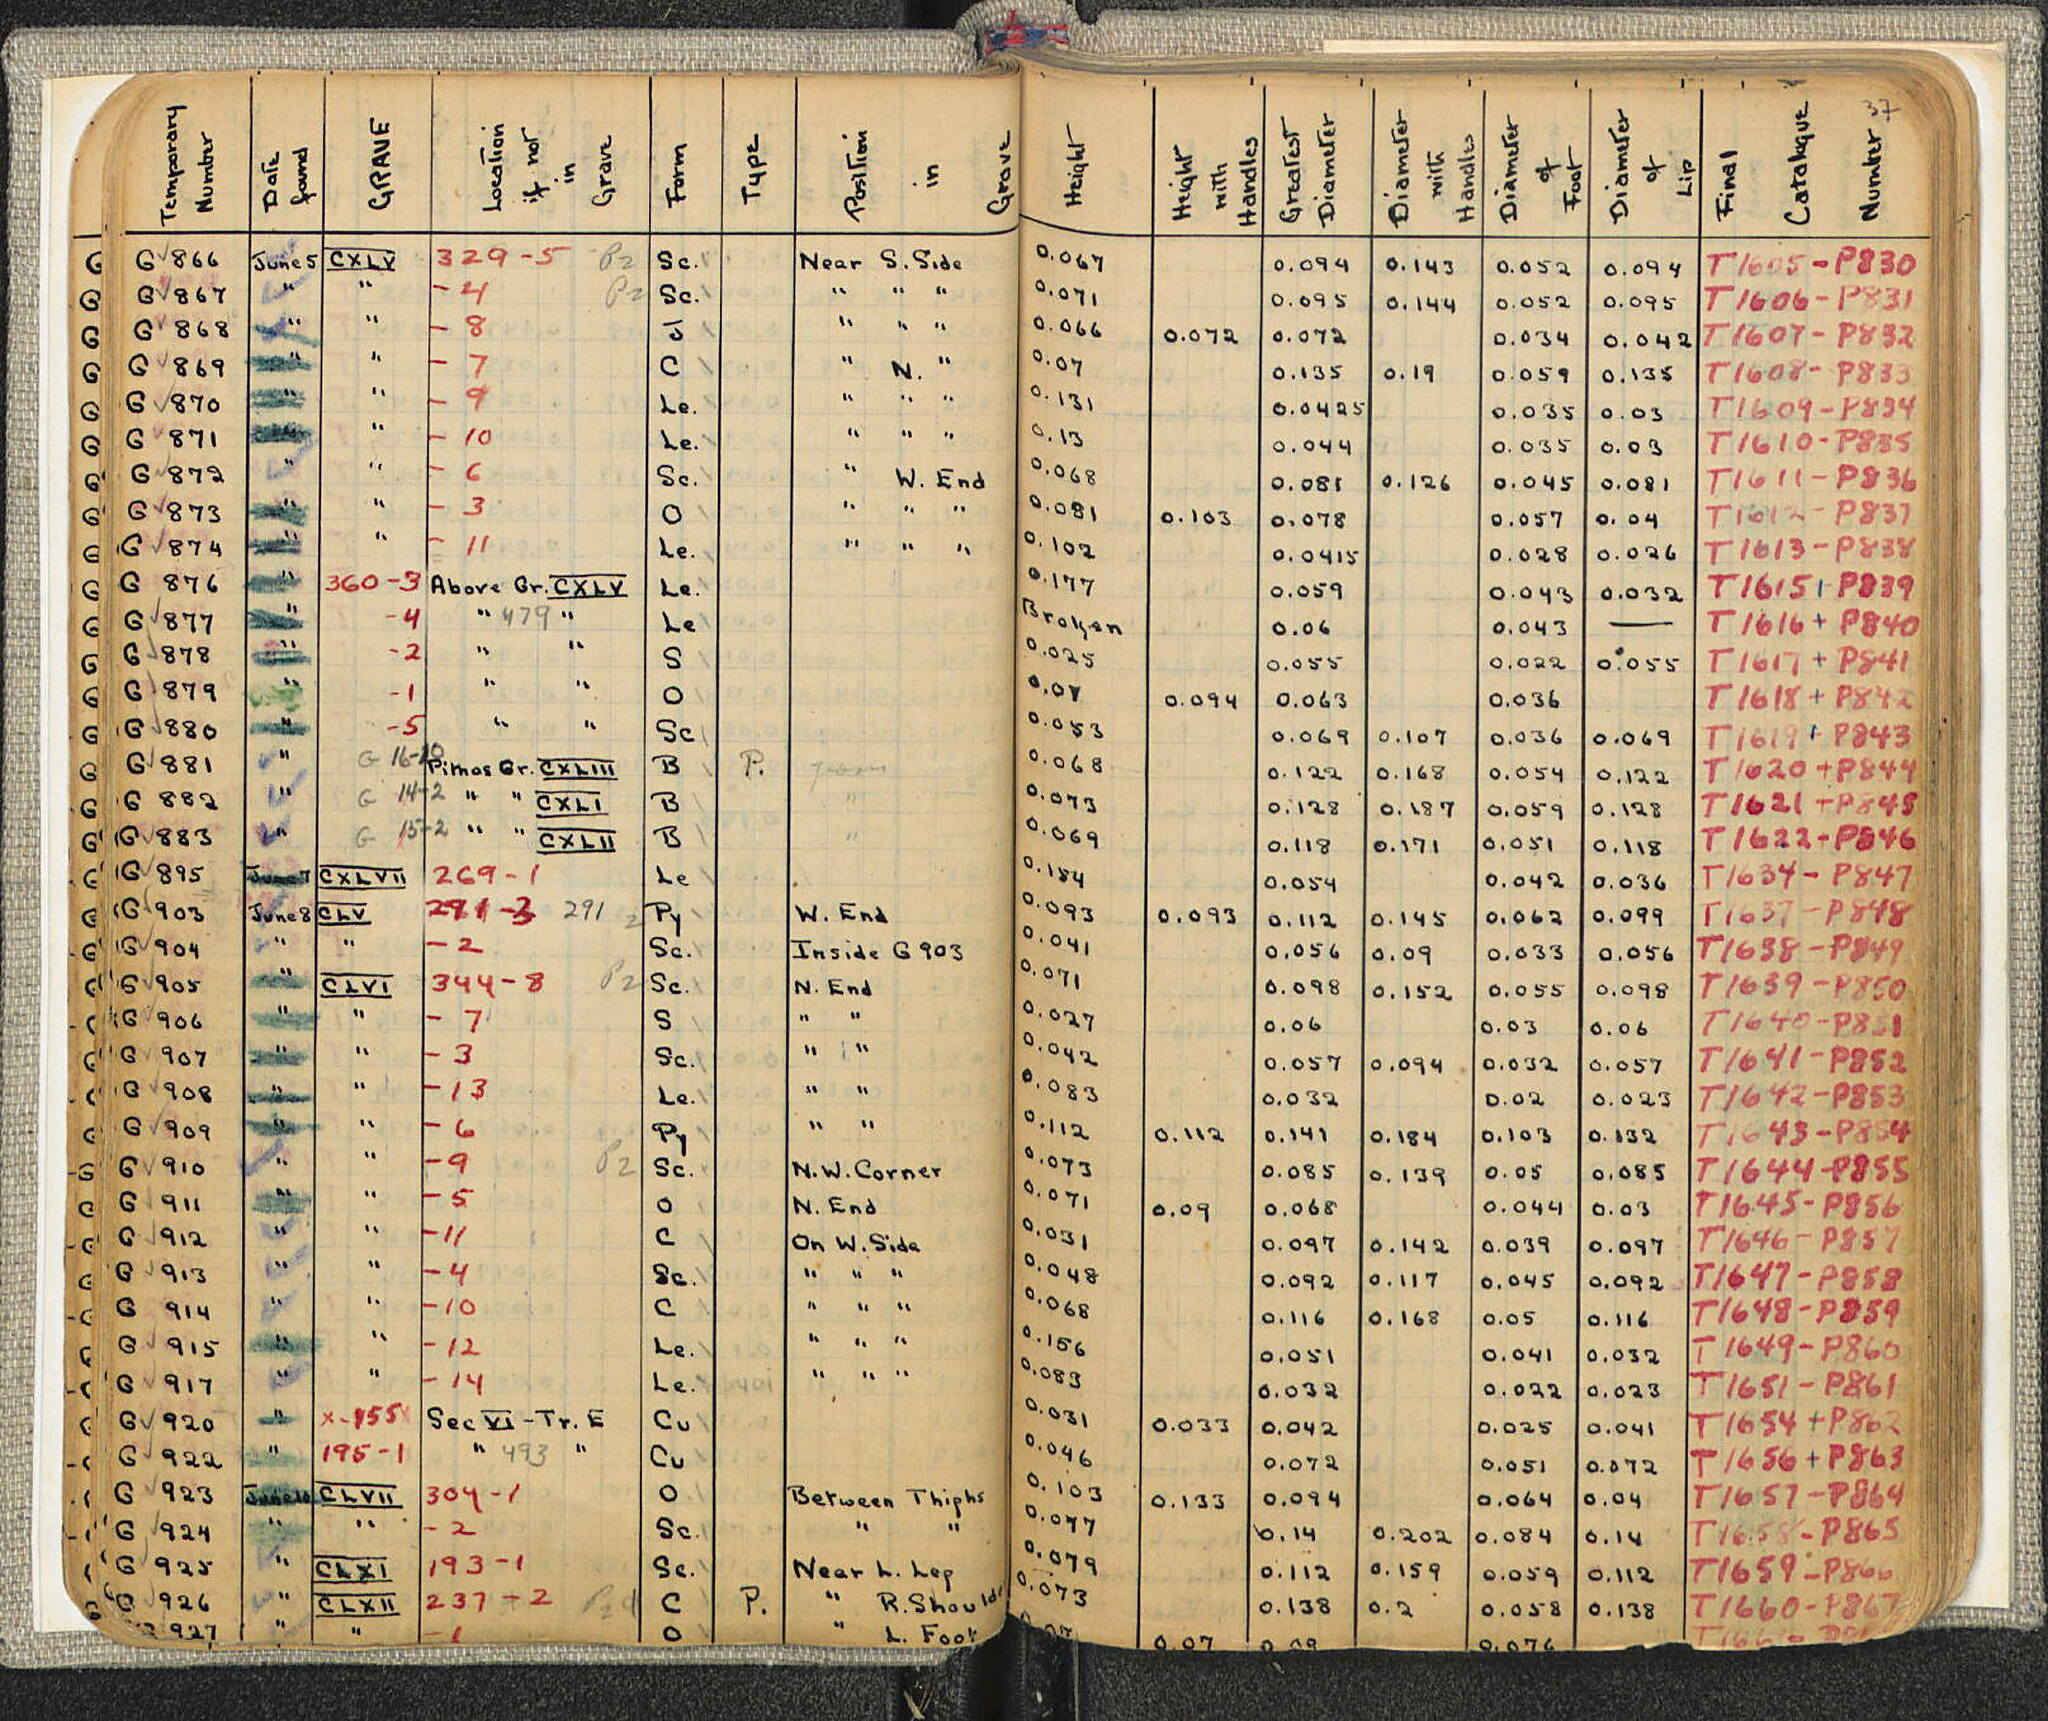 37
Temporary Number | Date found | GRAVE | Location if not in Grave | Form | Type | Position in Grave | Height | Height with Handles | Greatest Diameter | Diameter with Handles | Diameter of Foot | Diameter of Lip | Final Catalogue Number
G 866 June 5 CXLV 329-5 P2 Sc. Near S. Side 0.067 0.094 0.143 0.052 0.094 T1605-P830
G 867 " " -4 P2 Sc. " " " 0.071 0.095 0.144 0.052 0.095 T1606-P831
G 868 " " -8 J " " " 0.066 0.072 0.072 0.034 0.042 T1607-P832
G 869 " " -7 C " N. " 0.07 0.135 0.19 0.059 0.135 T1608-P833
G 870 " " -9 Le. " " " 0.131 0.0425 0.035 0.03 T1609-P834
G 871 " " -10 Le. " " " 0.13 0.044 0.035 0.03 T1610-P835
G 872 " " -6 Sc. " W. End 0.068 0.081 0.126 0.045 0.081 T1611-P836
G 873 " " -3 O " " " 0.081 0.103 0.078 0.057 0.04 T1612-P837
G 874 " " -11 Le. " " " 0.102 0.0415 0.028 0.026 T1613-P838
G 876 " 360-3 Above Gr. CXLV Le. 0.177 0.059 0.043 0.032 T1615+P839
G 877 " -4 " 479 " Le Broken 0.06 0.043 — T1616+P840
G 878 " -2 " " S 0.025 0.055 0.022 0.055 T1617+P841
G 879 " -1 " " O 0.07 0.094 0.063 0.036 T1618+P842
G 880 " -5 " " Sc 0.053 0.069 0.107 0.036 0.069 T1619+P843
G 881 " G 16- Pithos Gr. CXLIII B P. 0.068 0.122 0.168 0.054 0.122 T1620+P844
G 882 " G 14-2 " " CXLI B " 0.073 0.128 0.187 0.059 0.128 T1621+P845
G 883 " G 15-2 " " CXLII B " 0.069 0.118 0.171 0.051 0.118 T1622-P846
G 895 June 7 CXLVII 269-1 Le 0.184 0.054 0.042 0.036 T1634-P847
G 903 June 8 CLV 291-3 291 2 Py W. End 0.093 0.093 0.112 0.145 0.062 0.099 T1637-P848
G 904 " " -2 Sc. Inside G 903 0.041 0.056 0.09 0.033 0.056 T1638-P849
G 905 " CLVI 344-8 P2 Sc. N. End 0.071 0.098 0.152 0.055 0.098 T1639-P850
G 906 " " -7 S " " 0.027 0.06 0.03 0.06 T1640-P851
G 907 " " -3 Sc. " " 0.042 0.057 0.094 0.032 0.057 T1641-P852
G 908 " " -13 Le. " " 0.083 0.032 0.02 0.023 T1642-P853
G 909 " " -6 Py " " 0.112 0.112 0.141 0.184 0.103 0.132 T1643-P854
G 910 " " -9 P2 Sc. N.W. Corner 0.073 0.085 0.139 0.05 0.085 T1644-P855
G 911 " " -5 O N. End 0.071 0.09 0.068 0.044 0.03 T1645-P856
G 912 " " -11 C On W. Side 0.031 0.097 0.142 0.039 0.097 T1646-P857
G 913 " " -4 Sc. " " " 0.048 0.092 0.117 0.045 0.092 T1647-P858
G 914 " " -10 C " " " 0.068 0.116 0.168 0.05 0.116 T1648-P859
G 915 " " -12 Le. " " " 0.156 0.051 0.041 0.032 T1649-P860
G 917 " " -14 Le. " " " 0.083 0.032 0.022 0.023 T1651-P861
G 920 " x-155 Sec VI - Tr. E Cu 0.031 0.033 0.042 0.025 0.041 T1654+P862
G 922 " 195-1 " 493 " Cu 0.046 0.072 0.051 0.072 T1656+P863
G 923 June 10 CLVII 304-1 O Between Thighs 0.103 0.133 0.094 0.064 0.04 T1657-P864
G 924 " " -2 Sc. " " 0.077 0.14 0.202 0.084 0.14 T1658-P865
G 925 " CLXI 193-1 Sc. Near L. Leg 0.079 0.112 0.159 0.059 0.112 T1659-P866
G 926 " CLXII 237-2 C P. " R. Should 0.073 0.138 0.2 0.058 0.138 T1660-P867
927 " " -1 O " L. Foot 0.07 0.09 0.076